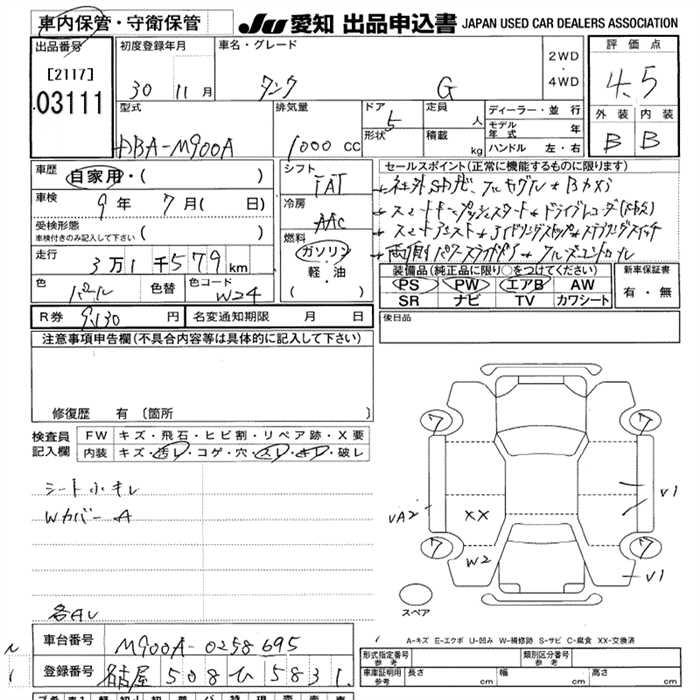 車内保管・守衛保管
JU 愛知 出品申込書 JAPAN USED CAR DEALERS ASSOCIATION
出品番号
[2117]
03111
初度登録年月
30 11月
車名・グレード
タンク G
2WD
・
4WD
評価点
4.5
外装 内装
B B
型式
DBA-M900A
排気量
1000 cc
ドア 5
形状
定員 人
積載 kg
ディーラー・並行
モデル年式 年
ハンドル 左・右
車歴
自家用・( )
車検
9年 7月( 日)
受検形態
車検付きのみ記入して下さい ( )
走行
3万1千579km
色 パール 色替 色コード W24
シフト
IAT
冷房
AAC
燃料
ガソリン
・
軽・油
( )
セールスポイント(正常に機能するものに限ります)
スマートキー プッシュスタート ドライブレコーダ
両側パワースライドドア
装備品(純正品に限り○をつけてください)
PS PW エアB AW
SR ナビ TV カワシート
新車保証書
有・無
R券 9,130 円 名変通知期限 月 日
後日品
注意事項申告欄(不具合内容等は具体的に記入して下さい)
修復歴 有 〔箇所
検査員
記入欄
FW キズ・飛石・ヒビ割・リペア跡・X要
内装 キズ・汚レ・コゲ・穴・スレ・キレ・破レ
シート小キレ
Wカバー A
各AL
7 7
VA2 XX V1
7 7
W2 V1
スペア
A-キズ E-エクボ U-凹み W-補修跡 S-サビ C-腐食 XX-交換済
車台番号 M900A-0258695
登録番号 名古屋 508 ひ 5831
形式指定番号 参考
類別区分番号 参考
車庫証明用 参考 長さ cm 幅 cm 高さ cm